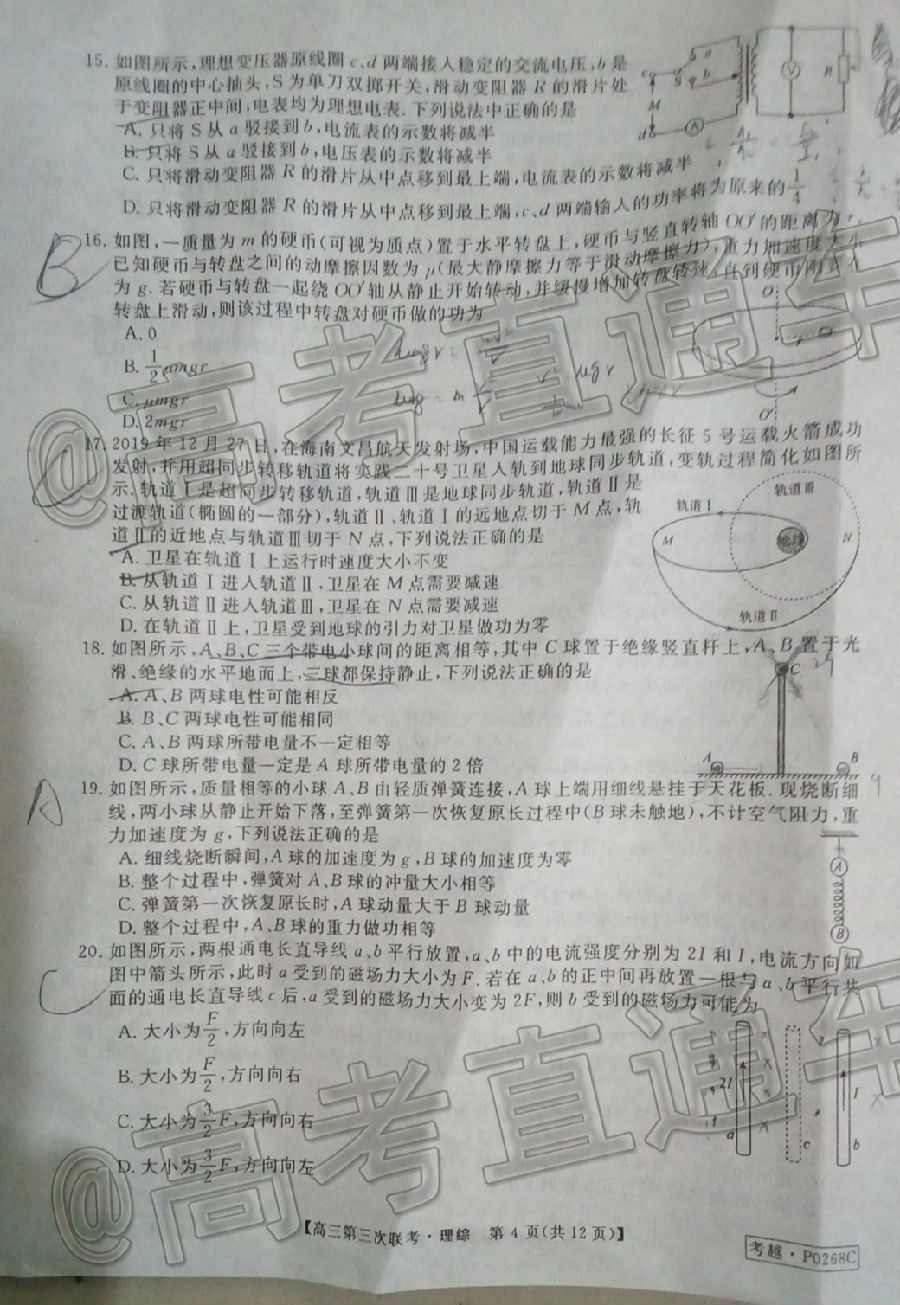 15. 如图所示,理想变压器原线圈c、d两端接入稳定的交流电压,b是
原线圈的中心抽头,S为单刀双掷开关,滑动变阻器R的滑片处
于变阻器正中间,电表均为理想电表.下列说法中正确的是
A. 只将S从a驳接到b,电流表的示数将减半
B. 只将S从a驳接到b,电压表的示数将减半
C. 只将滑动变阻器R的滑片从中点移到最上端,电流表的示数将减半
D. 只将滑动变阻器R的滑片从中点移到最上端,c、d两端输入的功率将为原来的1/4
16. 如图,一质量为m的硬币(可视为质点)置于水平转盘上,硬币与竖直转轴OO′的距离为r,
已知硬币与转盘之间的动摩擦因数为μ(最大静摩擦力等于滑动摩擦力),重力加速度大小
为g.若硬币与转盘一起绕OO′轴从静止开始转动,并缓慢增加转盘转速,直到硬币刚要在
转盘上滑动,则该过程中转盘对硬币做的功为
A. 0
B. 1/2 μmgr
C. μmgr
D. 2mgr
O
O′
B
17. 2019年12月27日,在海南文昌航天发射场,中国运载能力最强的长征5号运载火箭成功
发射,并用超同步转移轨道将实践二十号卫星入轨到地球同步轨道,变轨过程简化如图所
示.轨道Ⅰ是超同步转移轨道,轨道Ⅲ是地球同步轨道,轨道Ⅱ是
过渡轨道(椭圆的一部分),轨道Ⅱ、轨道Ⅰ的远地点切于M点,轨
道Ⅱ的近地点与轨道Ⅲ切于N点,下列说法正确的是
A. 卫星在轨道Ⅰ上运行时速度大小不变
B. 从轨道Ⅰ进入轨道Ⅱ,卫星在M点需要减速
C. 从轨道Ⅱ进入轨道Ⅲ,卫星在N点需要减速
D. 在轨道Ⅱ上,卫星受到地球的引力对卫星做功为零
轨道Ⅲ
轨道Ⅰ
M
地球
N
轨道Ⅱ
18. 如图所示,A、B、C三个带电小球间的距离相等,其中C球置于绝缘竖直杆上,A、B置于光
滑、绝缘的水平地面上,三球都保持静止,下列说法正确的是
A. A、B两球电性可能相反
B. B、C两球电性可能相同
C. A、B两球所带电量不一定相等
D. C球所带电量一定是A球所带电量的2倍
C
A
B
19. 如图所示,质量相等的小球A、B由轻质弹簧连接,A球上端用细线悬挂于天花板.现烧断细
线,两小球从静止开始下落,至弹簧第一次恢复原长过程中(B球未触地),不计空气阻力,重
力加速度为g,下列说法正确的是
A. 细线烧断瞬间,A球的加速度为g,B球的加速度为零
B. 整个过程中,弹簧对A、B球的冲量大小相等
C. 弹簧第一次恢复原长时,A球动量大于B球动量
D. 整个过程中,A、B球的重力做功相等
A
B
A
20. 如图所示,两根通电长直导线a、b平行放置,a、b中的电流强度分别为2I和I,电流方向如
图中箭头所示,此时a受到的磁场力大小为F.若在a、b的正中间再放置一根与a、b平行共
面的通电长直导线c后,a受到的磁场力大小变为2F,则b受到的磁场力可能为
A. 大小为F/2,方向向左
B. 大小为F/2,方向向右
C. 大小为3/2 F,方向向右
D. 大小为3/2 F,方向向左
2I
I
a
c
b
C
@高考直通车
@高考直通车
【高三第三次联考·理综 第4页(共12页)】
考越·P0268C